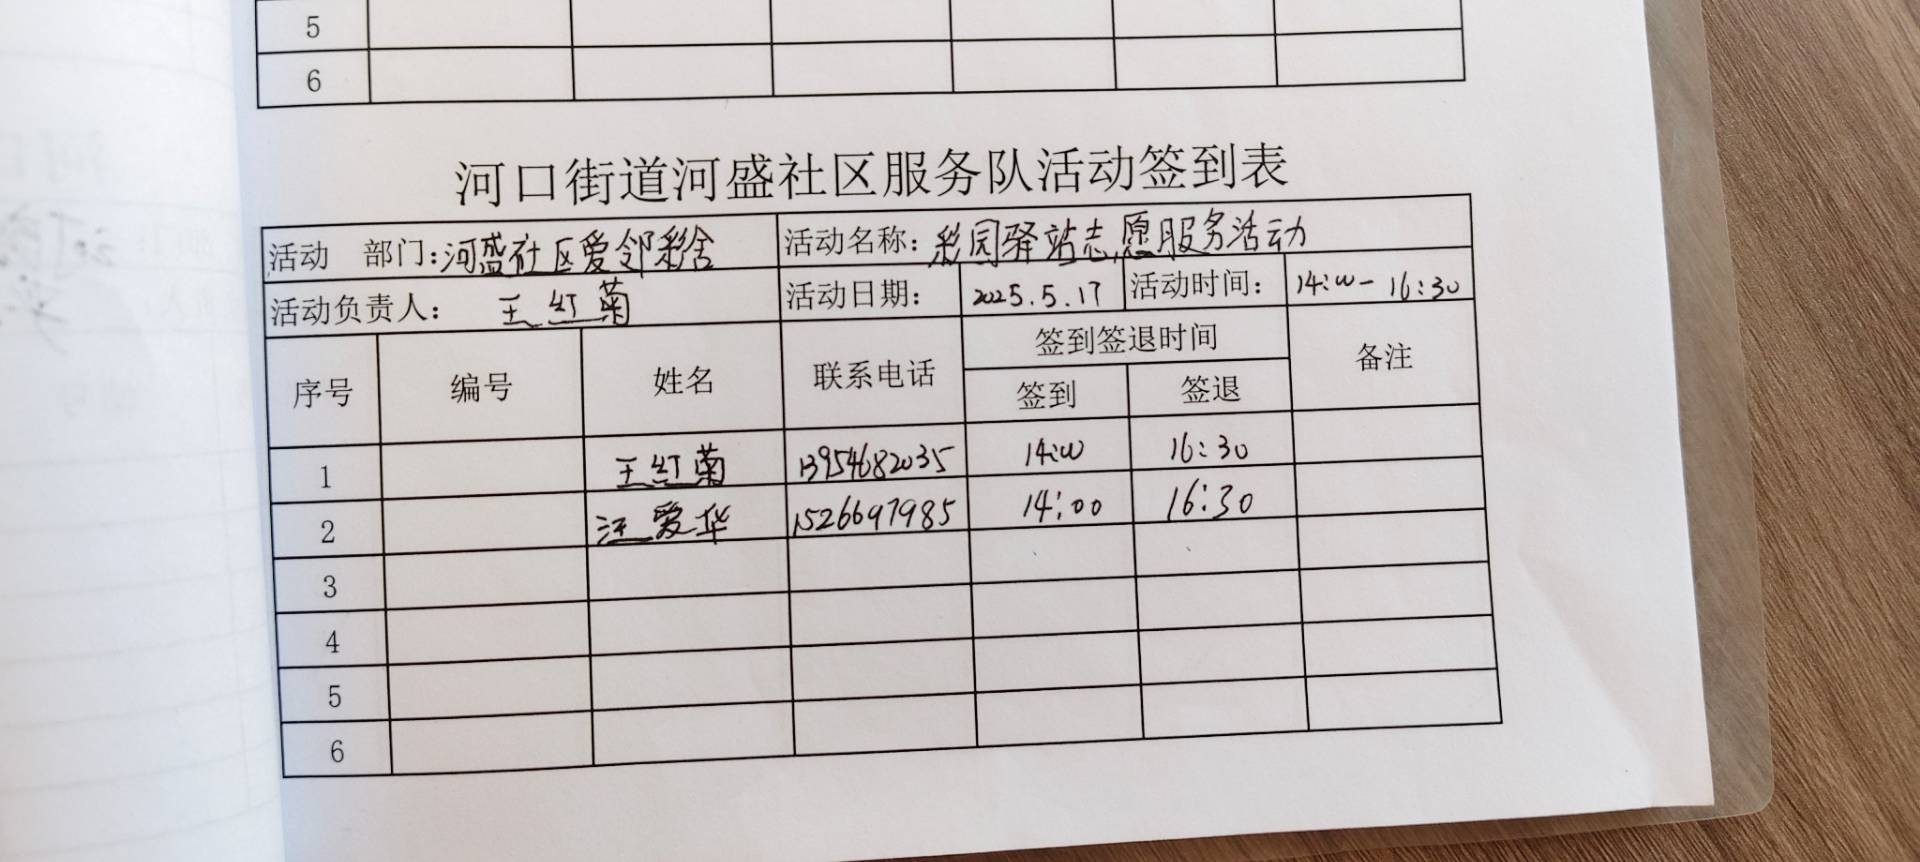 5
6
河口街道河盛社区服务队活动签到表
活动 部门:河盛社区爱邻彩舍 活动名称:彩园驿站志愿服务活动
活动负责人: 王红菊 活动日期: 2025.5.17 活动时间: 14:00-16:30
序号 编号 姓名 联系电话 签到签退时间 备注
签到 签退
1 王红菊 13954682035 14:00 16:30
2 汪爱华 15266697985 14:00 16:30
3
4
5
6